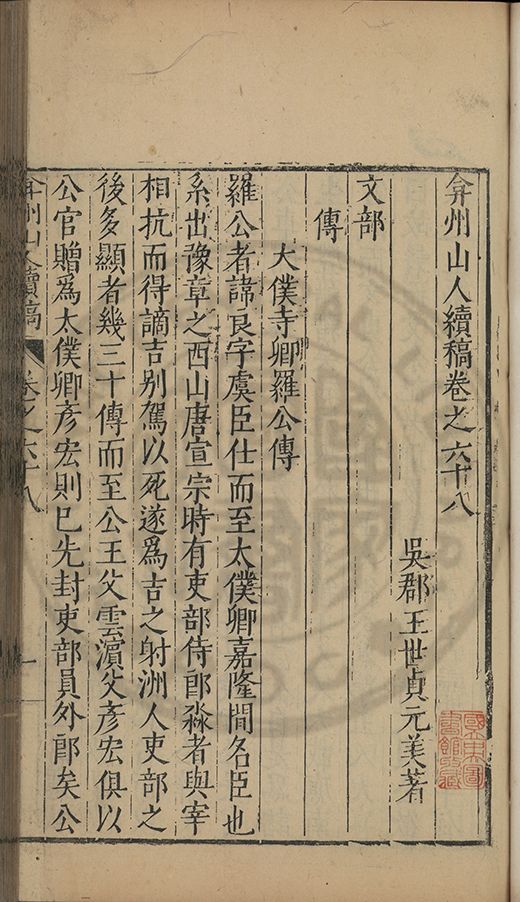 弇州山人續稿卷之六十八
吳郡王世貞元美著
文部
傳
大僕寺卿羅公傳
羅公者諱良字虞臣仕而至太僕卿嘉隆間名臣也
系出豫章之西山唐宣宗時有吏部侍郎淼者與宰
相抗而得謫吉别駕以死遂爲吉之射洲人吏部之
後多顯者幾三十傳而至公王父雲濵父彦宏俱以
公官贈爲太僕卿彦宏則巳先封吏部員外郎矣公
弇州山人續稿 卷之六十八 一